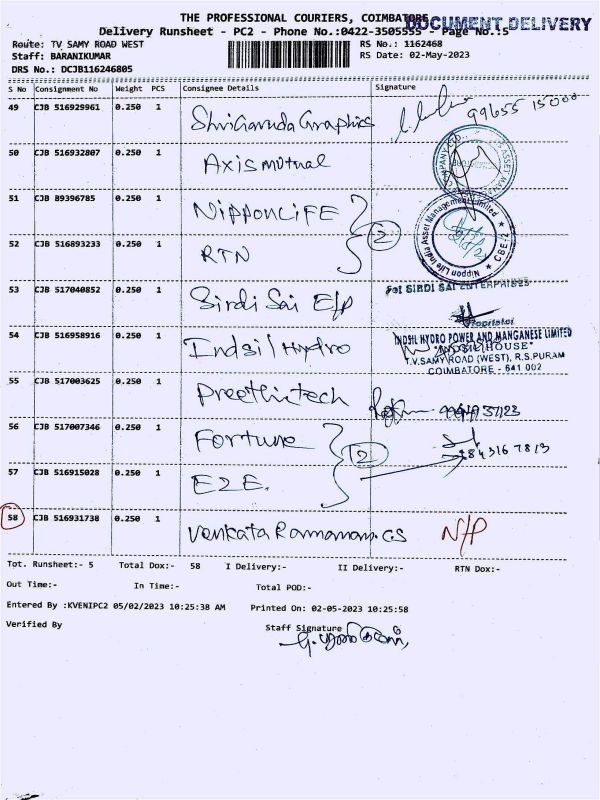 THE PROFESSIONAL COURIERS, COIMBATORE
DOCUMENT DELIVERY
Delivery Runsheet - PC2 - Phone No.:0422-3505555 - Page No.:5
Route: TV SAMY ROAD WEST
RS No.: 1162468
Staff: BARANIKUMAR
RS Date: 02-May-2023
DRS No.: DCJB116246805
S No Consignment No Weight PCS Consignee Details Signature
49 CJB 516929961 0.250 1 ShriGaruda Graphics 99655 15000
50 CJB 516932807 0.250 1 Axis mutual
51 CJB 89396785 0.250 1 Nippon LIFE
Nippon Life India Asset Management Limited
CBE-2
2
52 CJB 516893233 0.250 1 RTN
53 CJB 517040852 0.250 1 Sirdi Sai E/p
For SIRDI SAI ENTERPRISES
Proprietor
54 CJB 516958916 0.250 1 Indsil Hydro
INDSIL HYDRO POWER AND MANGANESE LIMITED
"INDSIL HOUSE"
T.V.SAMY ROAD (WEST), R.S.PURAM
COIMBATORE - 641 002
55 CJB 517003625 0.250 1 Preethi tech
56 CJB 517007346 0.250 1 Fortune
2
57 CJB 516915028 0.250 1 E2E.
58 CJB 516931738 0.250 1 Venkata Ramanan. GS N/P
Tot. Runsheet:- 5 Total Dox:- 58 I Delivery:- II Delivery:- RTN Dox:-
Out Time:- In Time:- Total POD:-
Entered By :KVENIPC2 05/02/2023 10:25:38 AM Printed On: 02-05-2023 10:25:58
Verified By Staff Signature